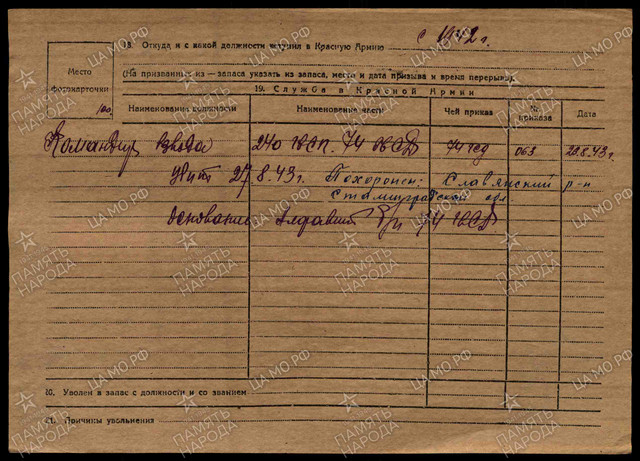 18. Откуда и с какой должности вступил в Красную Армию с 1942 г.
Место фотокарточки
(На призванных из — запаса указать из запаса, место и дата призыва и время перерыва).
19. Служба в Красной Армии
Наименование должности Наименование части Чей приказ № приказа Дата
Командир взвода 240 гвсп. 74 гвсд 74 гсд 063 22.8.43 г.
Убит 27.8.43 г. Похоронен: Славянский р-н
Сталинградская обл
Основание: 74 гвсд
20. Уволен в запас с должности и со званием
21. Причины увольнения
ПАМЯТЬ НАРОДА
ЦА МО РФ